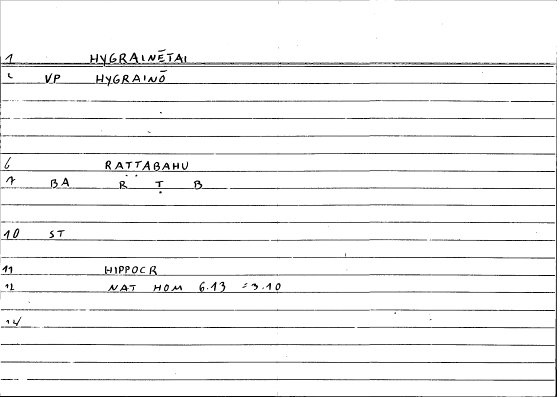 1 HYGRAINĒTAI
VP HYGRAINŌ
6 RAṬṬABAHU
7 BA R Ṭ B
10 ST
11 HIPPOCR
12 NAT HOM 6.13 =3.10
14